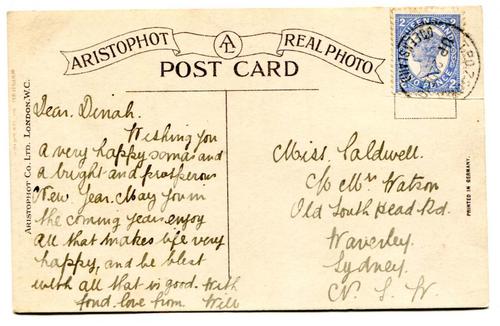 ARISTOPHOT
REAL PHOTO
POST CARD
Dear Dinah.
Wishing you
a very happy xmas and
a bright and prosperous
New Year. May you in
the coming years enjoy
all that makes life very
happy, and be blest
with all that is good. With
fond love from Will
Miss. Caldwell.
C/o Mrs Watson
Old South Head Rd.
Waverley.
Sydney.
N. S. W.
QUEENSLAND
2
2
TWO PENCE
2
2
QUEENSLAND
ARISTOPHOT CO. LTD., LONDON, W.C.
PRINTED IN GERMANY.